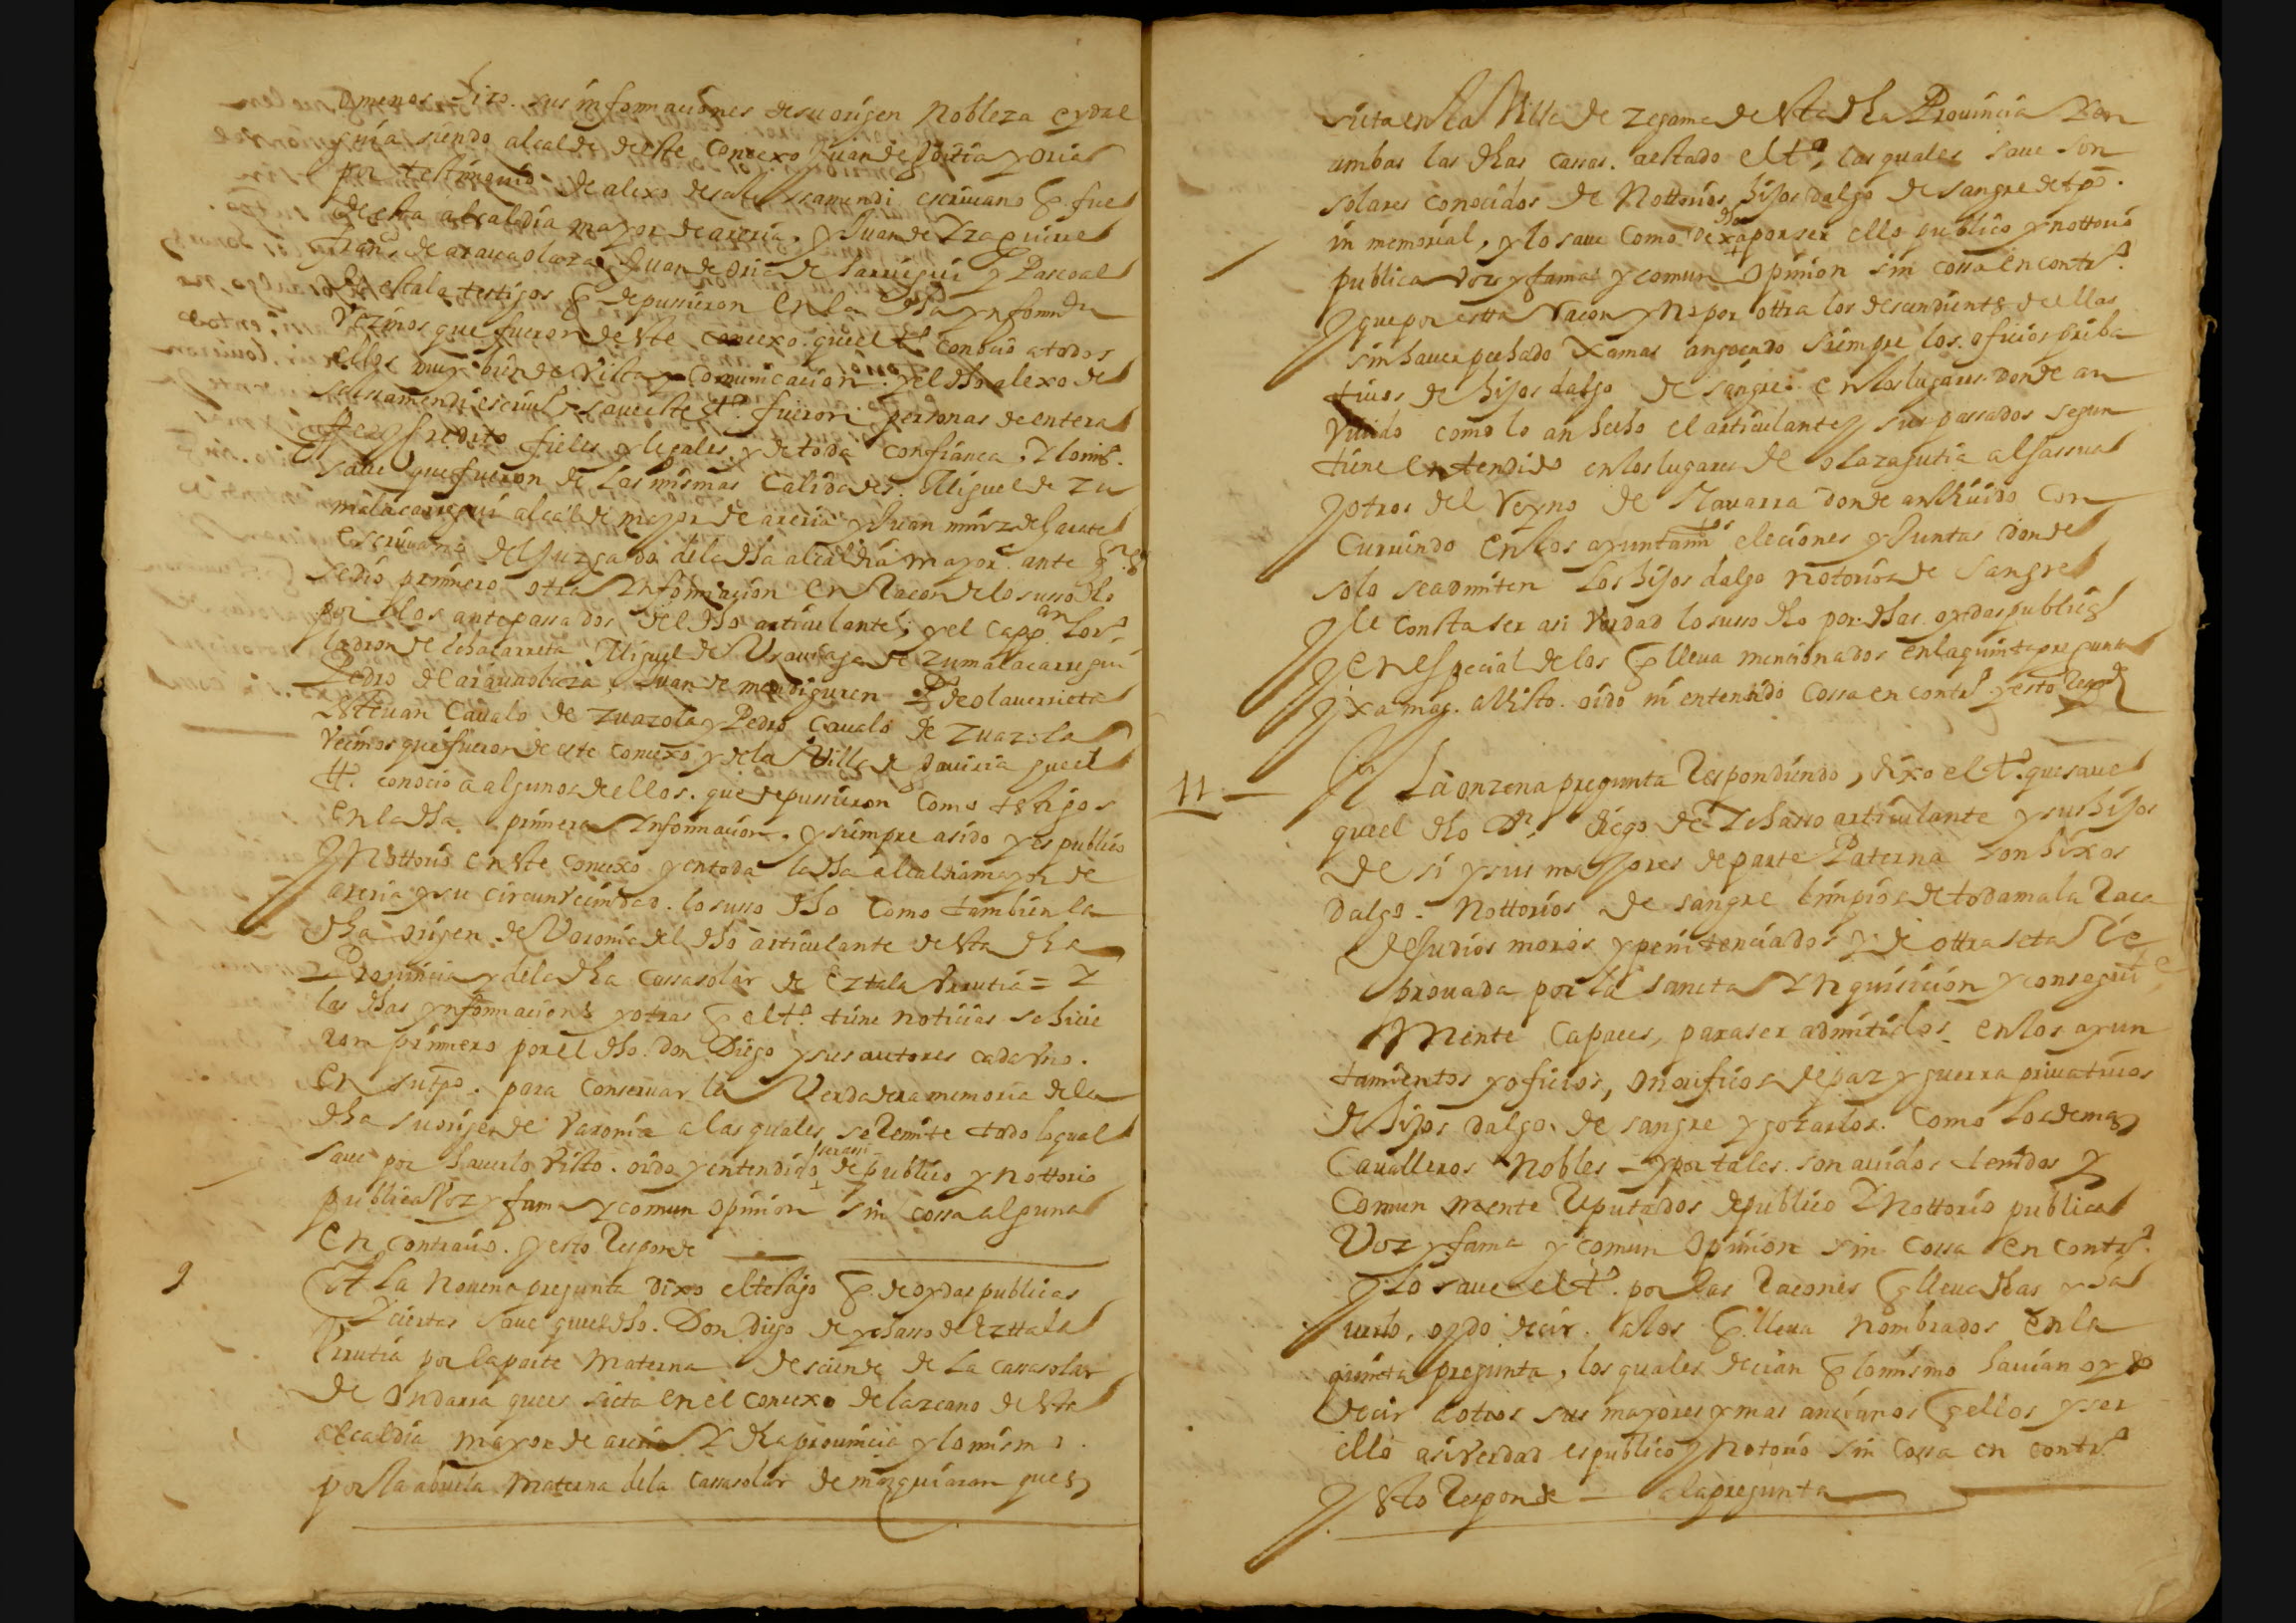 o menos hizo sus informaciones de su origen nobleza e ydal
guia siendo alcalde deste concexo Juan de
por testimonio de alexo de escrivano q fue
de esta alcaldia mayor de areria, y Juan de Yzaguirre
de aravaolaza Juan de oria de larriguii y Pascoal
de estala testigos q depussieron En la dha ynformon
Vezinos que fueron deste concexo que el tº conocio a todos
ellos muy bien de vista y comunicacion. y el dho alexo de
save este tº. fueron personas de entera
fee y credito fieles y legales y de toda confianca, Y lo mis.
save que fueron de las mismas calidades. Miguel de Zu
malacarregui alcalde mayor de areria y Juan de Garate
escrivano del Juzgado de la dha alcaldia mayor ante
se dio primero otra Informacion En racon de lo susso dho
por los antepassados del dho articulante, y el Capp.an
ladron de Echacarreta Miguel de de Zumalacarregui
Pedro de aravaolaza, Juan de mendiguren Pº de olaverrieta
Estevan Cavalo de Zuazola y Pedro Cavalo de Zuazola
Vecinos que fueron de este concexo y de la Villa de que el
tº. conocio a algunos de ellos. que depussieron Como testigos
En la dha. primera Informacion. y siempre a sido y es publico
y Nottorio en este concexo y en toda la dha alcaldia mayor de
areria y su circunvecindad. lo susso dho Como tambien la
dha origen de Varonia del dho articulante desta dha
Provincia y de la dha Cassa solar de Eztala Vrrutia = Y
las dhas ynformaciones y otras q el tº. tiene noticias se hicie
ron primero por el dho. don Diego y sus autores cada vno.
En su tpo. para Conservar la Verdadera memoria de la
dha su origen de Varonia a las quales se Remite todo lo qual
save por haverlo visto. oido y entendido de publico y nottorio
publica Voz y fama y comun opinion sin cossa alguna
En contrario. y esto Responde
9 A La Novena pregunta Dixo el testigo q de oydas publicas
Y ciertas save que el dho. Don Diego de ychasso de Ezttala
Vrrutia por la parte Materna desciende de La cassa solar
de Yndarra que es sicta en el concexo de lazcano desta
alcaldia mayor de areria Y dha provincia y lo mismo.
por la abuela Materna de la Cassa solar de mazquiaran que es
sicta en la Villa de Zegama desta dha Provincia Y en
ambas las dhas cassas. a estado el tº, las quales save son
solares conocidos de Nottorios hijos dalgo de sangre de tpo.
in memorial, y lo save como dho por ser ello publico y nottorio
publica voz y fama y comun opinion sin cossa en contrº.
y que por esta racon y no por ottra los descendientes de ellas
sin haver pechado Xamas an gocado siempre los oficios priba
tivos de hijos dalgo de sangre en los lugares donde an
vivido como lo an hecho el articulante y sus passados segun
tiene entendido en los lugares de olazagutia alsassua
y otros del Reyno de Navarra donde an vivido Con
curriendo En los ayuntamtos eleciones y Juntas donde
solo se admiten Los hijos dalgo notorios de sangre
y le Consta ser asi Verdad lo susso dho por dhas oydas publicas
y en especial de los q lleva mencionados en la quinta pregunta
y xamas. a visto. oido ni entendido Cossa en contrº. y esto Respde
11 A La onzena pregunta Respondiendo, dixo el tº. que save
que el dho Dn. diego de Ychasso articulante y sus hijos
De si y sus mayores de parte Paterna son hixos
dalgo. Nottorios de sangre limpios de toda mala Raca
de Judios moros y penitenciados y de ottra seta Re
provada por la sancta Ynquisicion y conseguite
Mente Capaces, para ser admitidos en los ayun
tamientos y oficios, onorificos de paz y guerra privativos
de hijos dalgo de sangre y gozarlos. Como los demas
Cavalleros Nobles = y por tales. son avidos tenidos y
Comun mente Reputados de publico Y Nottorio publica
Voz y fama y comun opinion sin cossa en contrº.
y lo save el tº. por las Racones q lleva dhas y ha
verlo, oydo decir. a los q lleva nombrados en la
quinta pregunta, los quales decian q lo mismo havian oydo
decir a otros sus mayores y mas ancianos q ellos y ser
ello asi Verdad es publico y Notorio sin cossa en contrº
y Esto Responde — a la pregunta